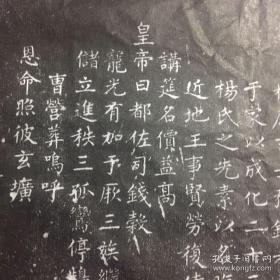 于家以成化二十二
楊氏之先素以名
近地王事賢勞復
講筵名價益高
皇帝曰都佐司錢穀
寵光有加予厥三族
儲立進秩三孤鸞停鵠
曹營葬鳴呼
恩命照彼玄壙
孔夫子旧书网